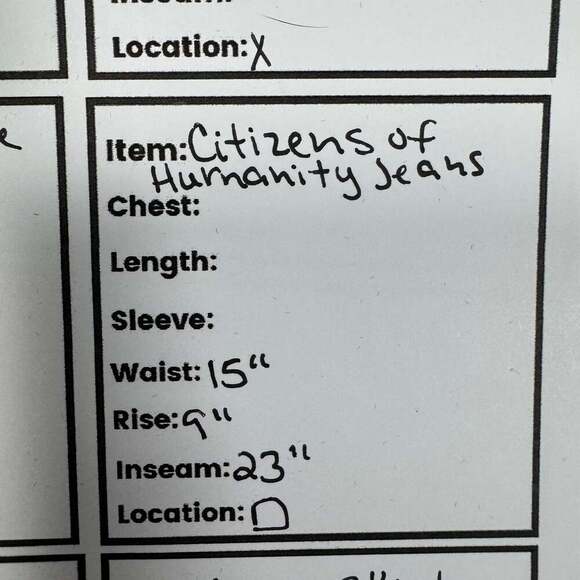 Location: X
Item: Citizens of
Humanity Jeans
Chest:
Length:
Sleeve:
Waist: 15"
Rise: 9"
Inseam: 23"
Location: D